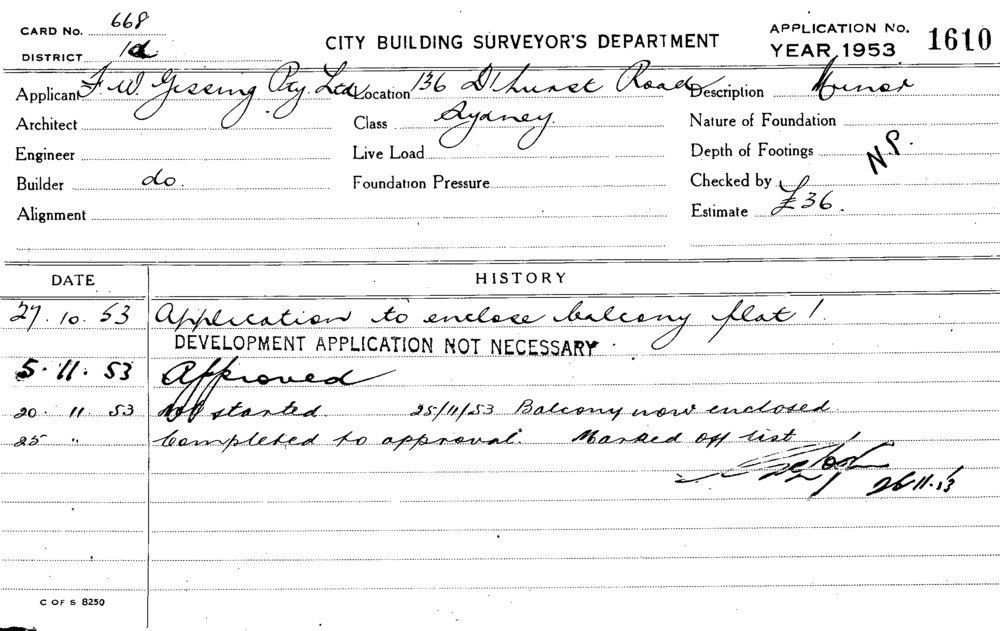 CARD No. 668
DISTRICT 1d
CITY BUILDING SURVEYOR'S DEPARTMENT
APPLICATION No.
YEAR 1953
1610
Applicant F. W. Gissing Pty. Ltd. Location 136 D'hurst Road Description Minor
Architect Class Sydney Nature of Foundation
Engineer Live Load Depth of Footings N.P.
Builder do. Foundation Pressure Checked by
Alignment Estimate £36.
DATE HISTORY
27.10.53 Application to enclose balcony flat 1.
DEVELOPMENT APPLICATION NOT NECESSARY
5.11.53 Approved
20.11.53 Not started. 25/11/53 Balcony now enclosed
25 " Completed to approval. Marked off list
26.11.53
C OF S 8250